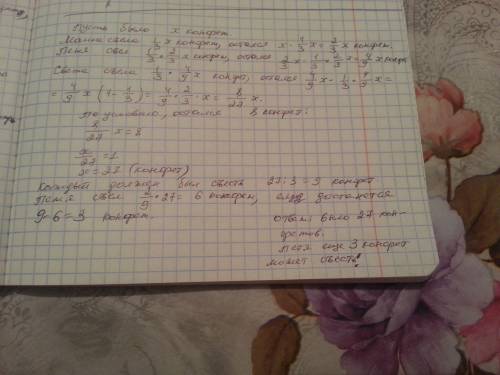 Пусть было x конфет.
Маша съела 1/3 x конфет, остался x - 1/3 x = 2/3 x конфет.
Петя съел 1/3 · 2/3 x конфет, остался 2/3 x - 1/3 · 2/3 x = 4/9 x конфет
Света съела 1/3 · 4/9 x конфет, остался 4/9 x - 1/3 · 4/9 x =
= 4/9 x (1 - 1/3) = 4/9 · 2/3 · x = 8/27 x.
По условию, остался 8 конфет:
8/27 x = 8
x/27 = 1
x = 27 (конфет)
Каждый должен был съесть 27 : 3 = 9 конфет
Петя съел 2/9 · 27 = 6 конфет, ему достанется
9 - 6 = 3 конфет.
Ответ: было 27 кон-
фетов.
Петя еще 3 конфет
может съесть!